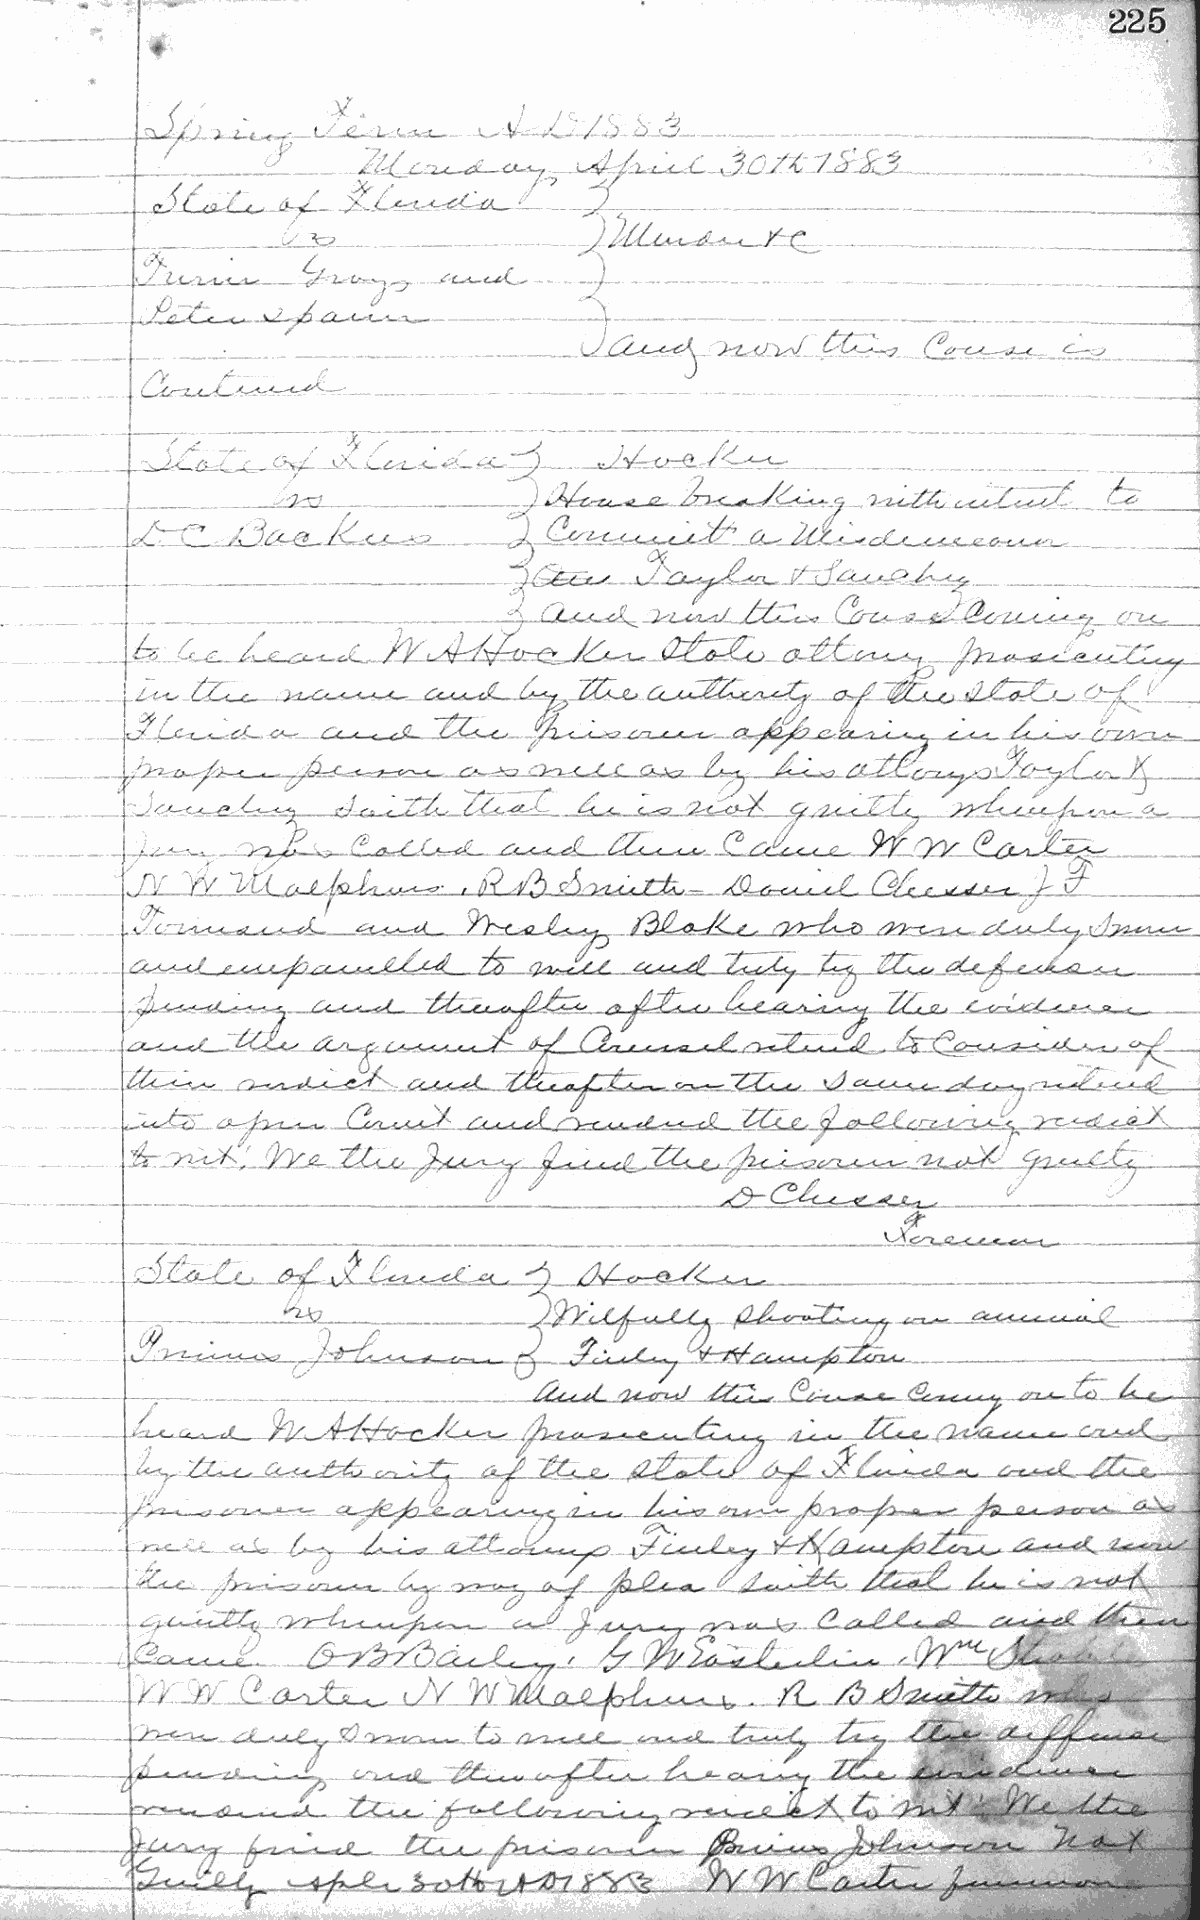 225
Spring Term A D 1883
Monday April 30th 1883
State of Florida
vs
Murder & C
Grays and
Peter Spann
and now this Cause is
Contined
State of Florida Hocker
vs House breaking with intent to
D C Backus Commit a Misdemeanor
Taylor & Sanchez
and now this Cause Coming on
to be heard W A Hocker State attorney prosecuting
in the name and by the authority of the State of
Florida and the prisoner appearing in his own
proper person as well as by his attorys Taylor &
Sanchez saith that he is not guilty whereupon a
Jury was Called and then Came W W Carter
N W Malphurs, R B Smith - Daniel Chesser J F
Townsend and Wesley Blake who were duly Sworn
and empanelled to well and truly try the defense
pending and thereafter after hearing the evidence
and the argument of Counsel retired to Consider of
their verdict and thereafter on the same day retired
into open Court and rendered the following verdict
to wit: We the Jury find the prisoner not guilty
D Chesser
Foreman
State of Florida Hocker
vs Wilfully Shooting an animal
Primus Johnson Finley & Hampton
and now this Cause coming on to be
heard W A Hocker prosecuting in the name and
by the authority of the State of Florida and the
prisoner appearing in his own proper person as
well as by his attorneys Finley & Hampton and now
the prisoner by way of plea saith that he is not
guilty whereupon a Jury was Called and then
Came O B Bailey, G W Easterlin, Wm
W W Carter N W Malphurs. R B Smith who
were duly Sworn to well and truly try the deffense
pending and thereafter hearing the evidence
rendered the following verdict to wit: We the
Jury find the prisoner Primus Johnson Not
Guilty Aple 30th A D 1883 W W Carter foreman